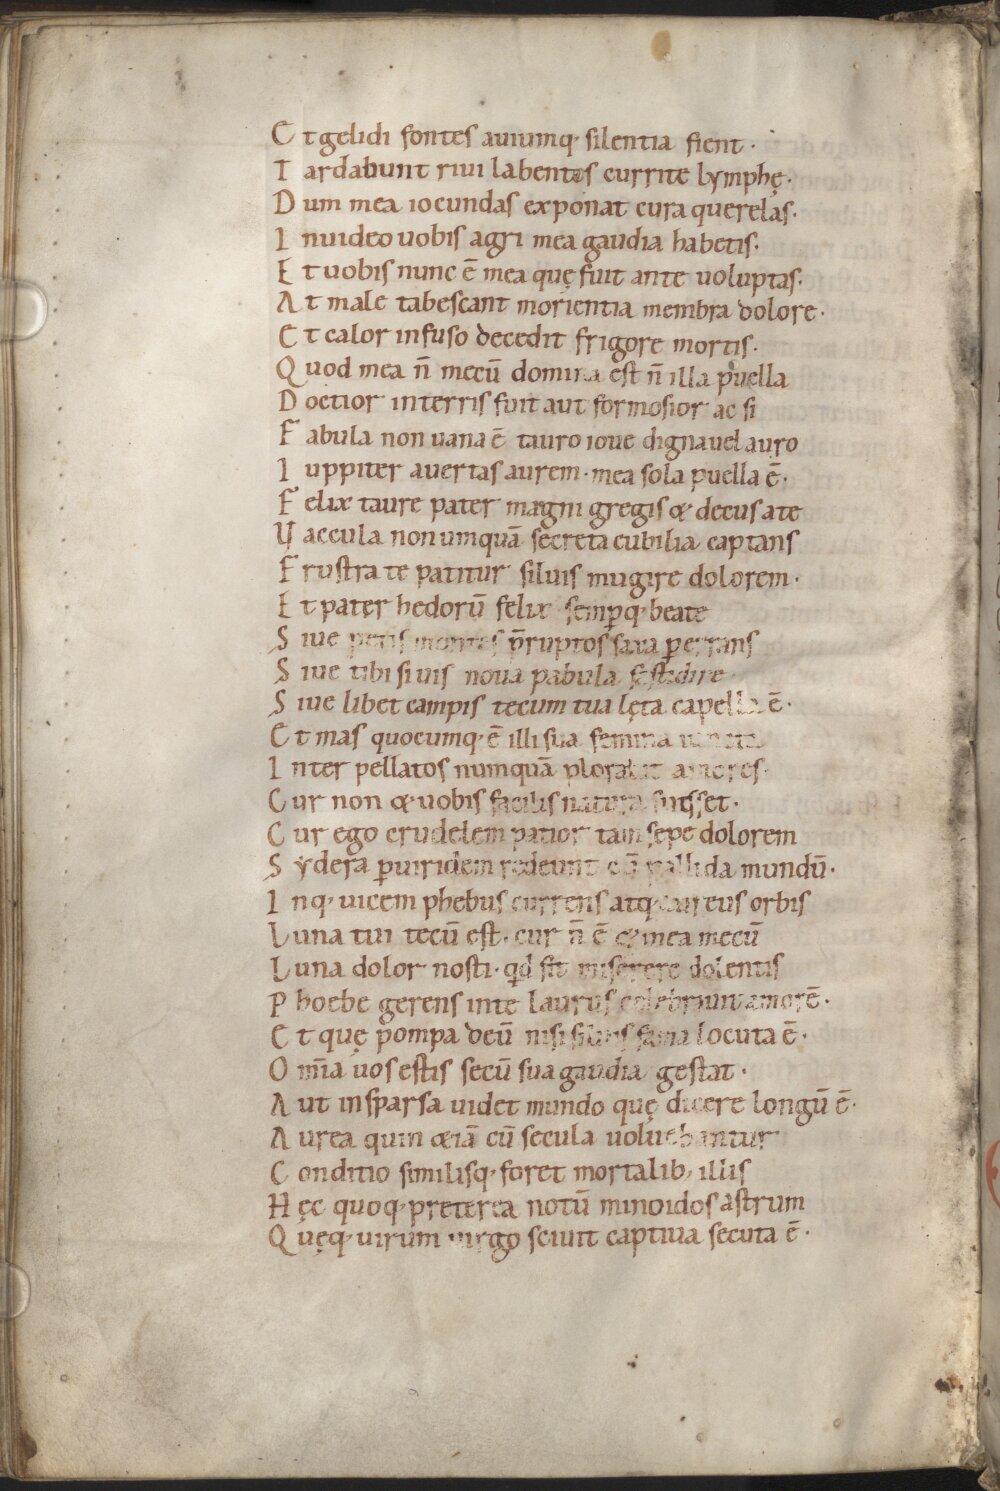 Et gelidi fontes auiumq· silentia fient·
Tardabunt riui labentes currite lymphę·
Dum mea iocundas exponat cura querelas·
Inuideo uobis agri mea gaudia habetis·
Et uobis nunc ē mea quę fuit ante uoluptas·
At male tabescant morientia membra dolore·
Et calor infuso decedit frigore mortis·
Quod mea n̄ mecū domina est n̄ illa puella
Doctior interris fuit aut formosior ac si
Fabula non uana ē tauro ioue digna uel auro
Iuppiter auertas aurem· mea sola puella ē·
Felix taure pater magni gregis & decus a te
Vaccula non umquā secreta cubilia captans
Frustra te patitur siluis mugire dolorem·
Et pater hedorū felix semp̄q· beate
Siue petis montes p̄ruptos saxa p̄errans
Siue tibi siuis noua pabula fastidire
Siue libet campis tecum tua lęta capella ē·
Et mas quocumq· ē illi sua femina iuncta
Inter pellatos numquā plorabit amores·
Cur non & uobis facilis natura fuisset·
Cur ego crudelem patior tam sepe dolorem
Sẏdera p̄ uiridem redeunt cū pallida mundū·
Inq· uicem phebus currens atq· aureus orbis
Luna tui tecū est· cur n̄ ē & mea mecū
Luna dolor nosti· qd̄ sit miserere dolentis
Phoebe gerens in te laurus celebrauit amorē·
Et quę pompa deū nisi siluis fama locuta ē·
Om̄ia uos estis secū sua gaudia gestat·
Aut insparsa uidet mundo quę dicere longū ē·
Aurea quin &iā cū secula uoluebantur
Conditio similisq· foret mortalib; illis
Hęc quoq· preterea notū minoidos astrum
Quęq· uirum uirgo sciuit captiua secuta ē·